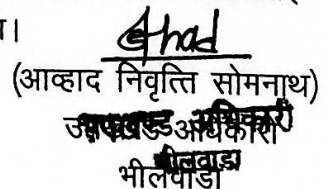 ।
(आव्हाद निवृत्ति सोमनाथ)
उपखण्ड अधिकारी
भीलवाडा